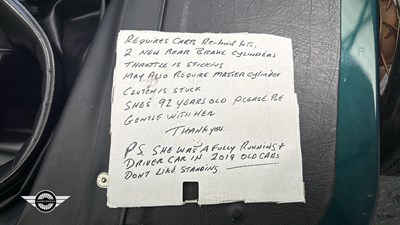 REQUIRES CARB Re-build kits,
2 NEW REAR BRAKE CYLINDERS
THROTTLE IS STICKING
MAY ALSO REQUIRE MASTER CYLINDER
CLUTCH IS STUCK
SHE'S 92 YEARS OLD PLEASE BE
GENTLE WITH HER
THANK YOU.
PS. SHE WAS A FULLY RUNNING +
DRIVER CAR IN 2019 OLD CARS
DONT LIKE STANDING